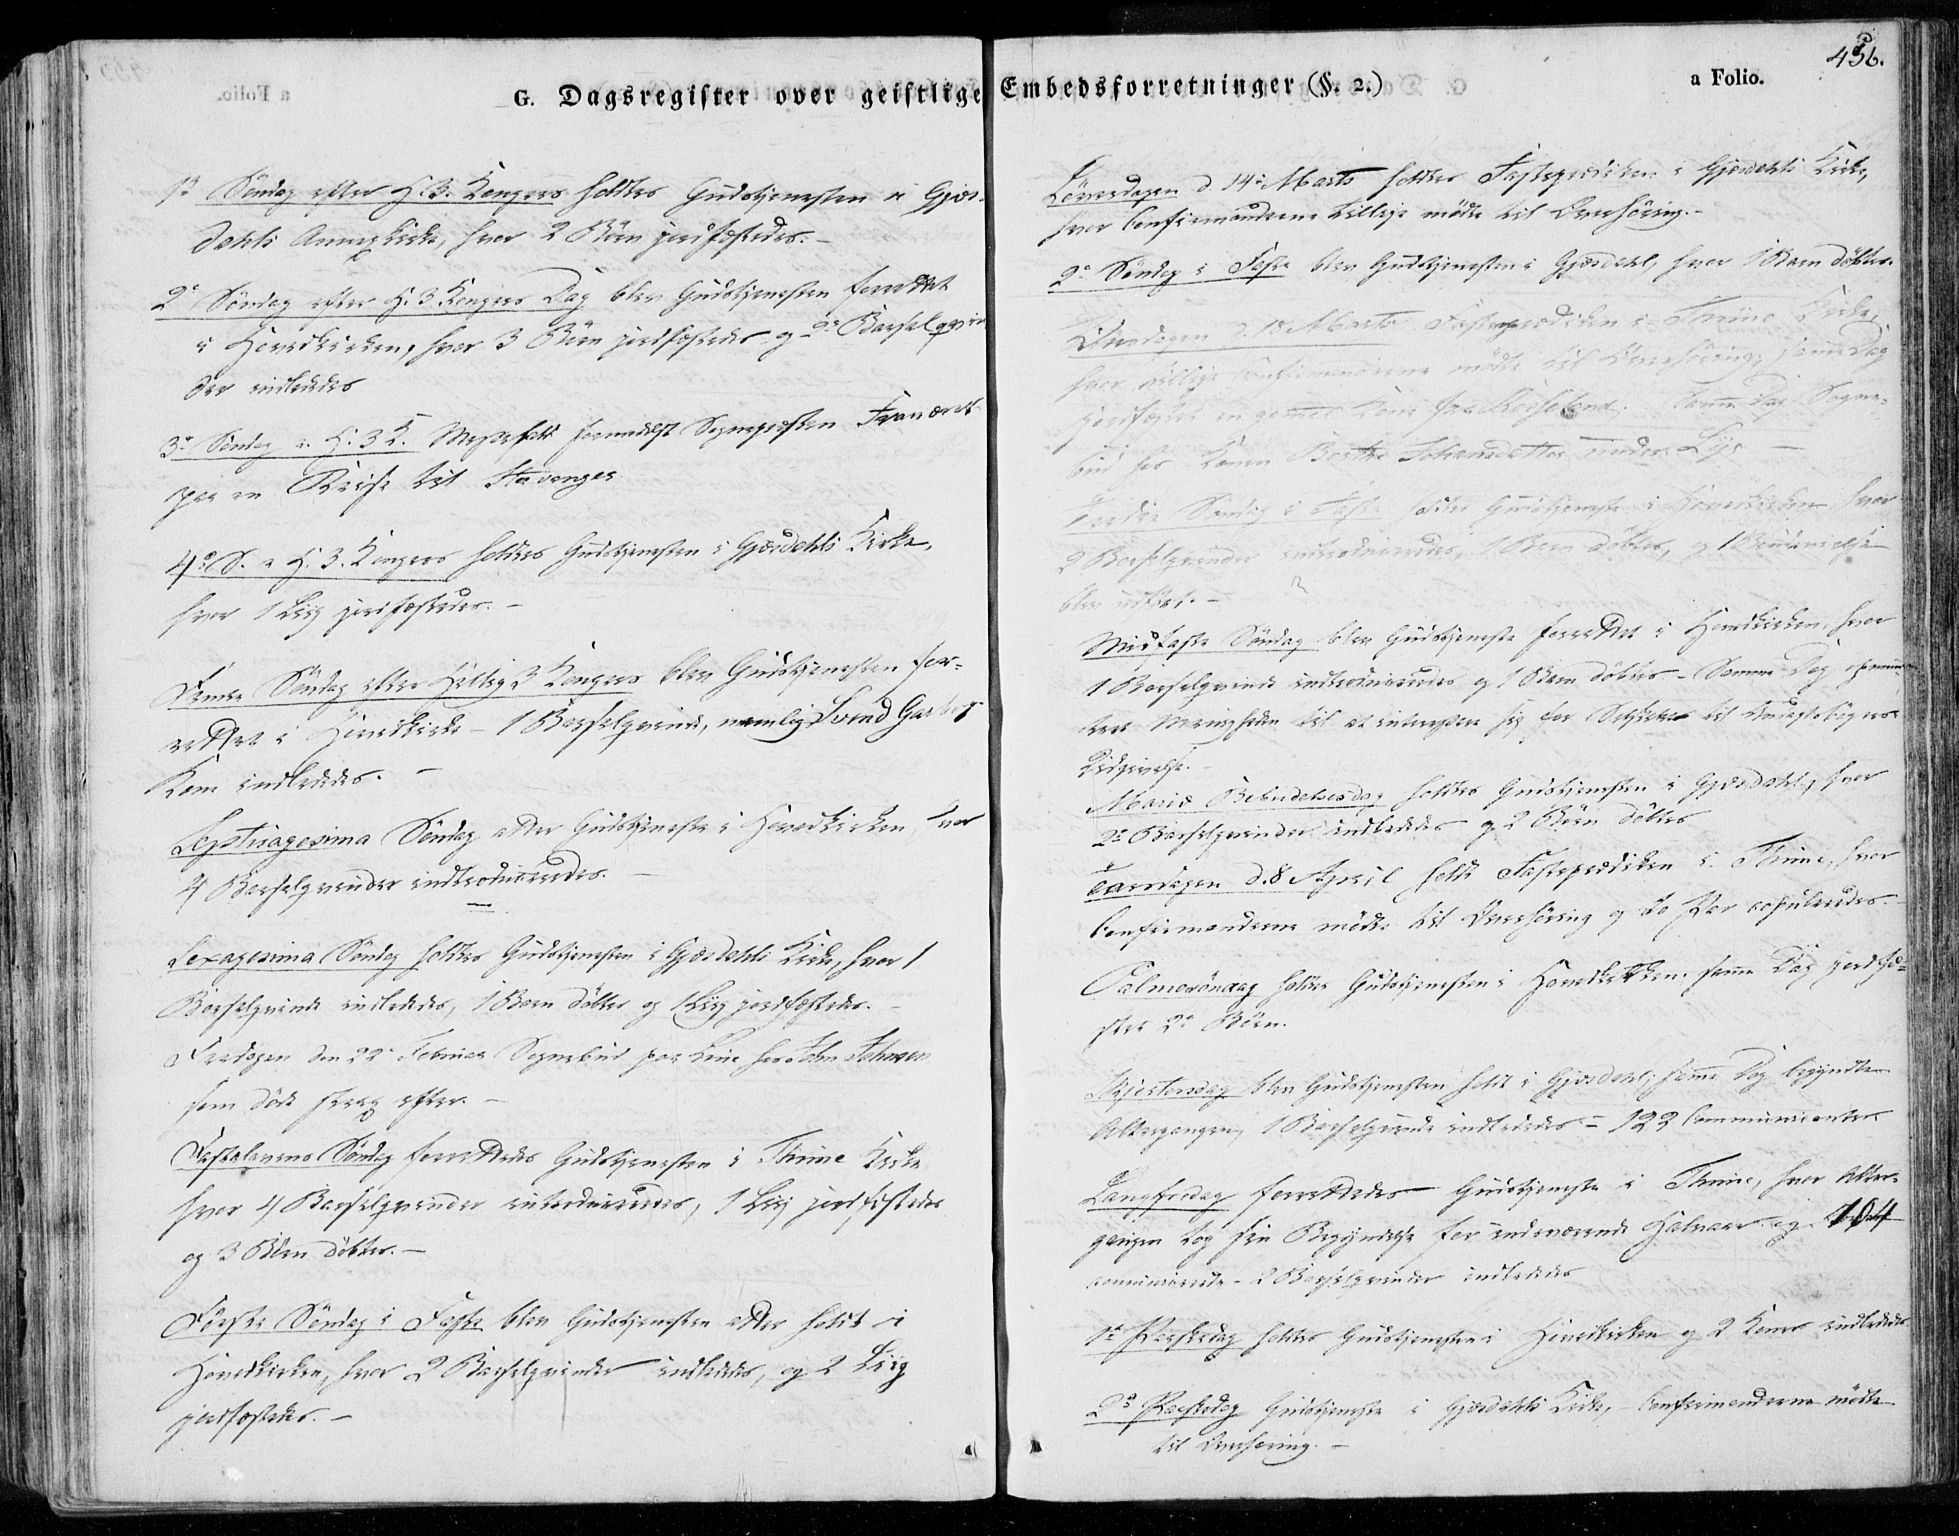 G. Dagsregister over geistlige Embedsforretninger (§. 2.)
a Folio.
456.
1ste Søndag efter H. 3. Kongers holdtes Gudstjenesten i Gjæs-
dahls Annexkirke, hvor 2 Børn jordfæstedes. –
2den Søndag efter H. 3 Kongers Dag blev Gudstjenesten forrettet
i Hovedkirken, hvor 3 Børn jordfæstedes og 2de Barselqvin
der indledtes
3die Søndag e. H. 3 K. Messefald formedelst Sognepræsten Fraværelse
paa en Reise til Stavanger
4de S. e H. 3. Kongers holdtes Gudstjenesten i Gjæsdahls Kirke,
hvor 1 Liig jordfæstedes. –
Femte Søndag efter Hellig 3 Kongers blev Gudstjenesten for-
rettet i Hovedkirke – 1 Barselqvinde, nemlig Svend Garborgs
Kone indledtes. –
Septuagesima Søndag atter Gudstjeneste i Hovedkirken, hvor
4 Barselqvinder introduceredes. –
Sexagesima Søndag holdtes Gudstjenesten i Gjæsdahls Kirke, hvor 1
Barselqvinde indledtes, 1 Barn døbtes og 1 Liig jordfæstedes. –
Fredagen den 22de Februar Sognebud paa Lime hos John Johnsen
som døde strax efter. –
Fastelavens Søndag forrettedes Gudstjenesten i Thime Kirke
hvor 4 Barselqvinder introduceredes, 1 Liig jordfæstedes
og 3 Børn døbtes. –
Første Søndag i Faste blev Gudstjenesten atter holdt i
Hovedkirken, hvor 2 Barselqvinder indledtes, og 2 Liig
jordfæstedes. –
Løverdagen d. 14de Marts holdtes Fasteprædiken i Gjæsdahls Kirke,
hvor Confirmanderne tillige mødte til Overhøring. –
2den Søndag i Faste blev Gudstjenesten i Gjæsdahl, hvor 1 Barn døbtes.
Onsdagen d. 18 Marts Fasteprædiken i Thime Kirke,
hvor tillige Confirmanderne mødte til Overhøring, samme Dag
jordfæstet en gammel Kone fra Rosseland. Samme Dag Sogne-
bud hos Konen Berthe Johannesdatter under Lye –
Tredie Søndag i Faste holdtes Gudstjeneste i Hovedkirken hvor
2 Barselqvinder introduceredes, 1 Barn døbtes, og 1
blev udført. –
Midfaste Søndag blev Gudstjeneste forrettet i Hovedkirken, hvor
1 Barselqvinde introduceredes og 1 Barn døbtes – Samme Dag opmun-
tret Menigheden til at interessere sig for Selskabet til Andagtsbøgers
Udgivelse.
Mariæ Bebudelsesdag holdtes Gudstjenesten i Gjæsdahl, hvor
2de Barselqvinder indledtes og 2 Børn døbtes
Torsdagen d. 8 April holdt Fasteprædiken i Thime, hvor
Confirmanderne mødte til Overhøring og to Par copuleredes.
Palmesøndag holdtes Gudstjenesten i Hovedkirken. samme Dag jordfæ-
stet 2de Børn.
Skjertorsdag blev Gudstjenesten holdt i Gjæsdahl, samme Dag begyndte
Altergangen, 1 Barselqvinde indledtes – 122 Communicanter
Langfredag forrettedes Gudstjeneste i Thime, hvor Alter-
gangen tog sin Begyndelse for indeværende Halvaar og 104
communicerede – 2 Barselqvinder indledtes
1ste Paaskedag holdtes Gudstjenesten i Hovedkirken og 2 Koner indledtes
2den Paaskedag Gudstjeneste i Gjæsdahls Kirke, – Confirmanderne mødte
til Overhøring. –